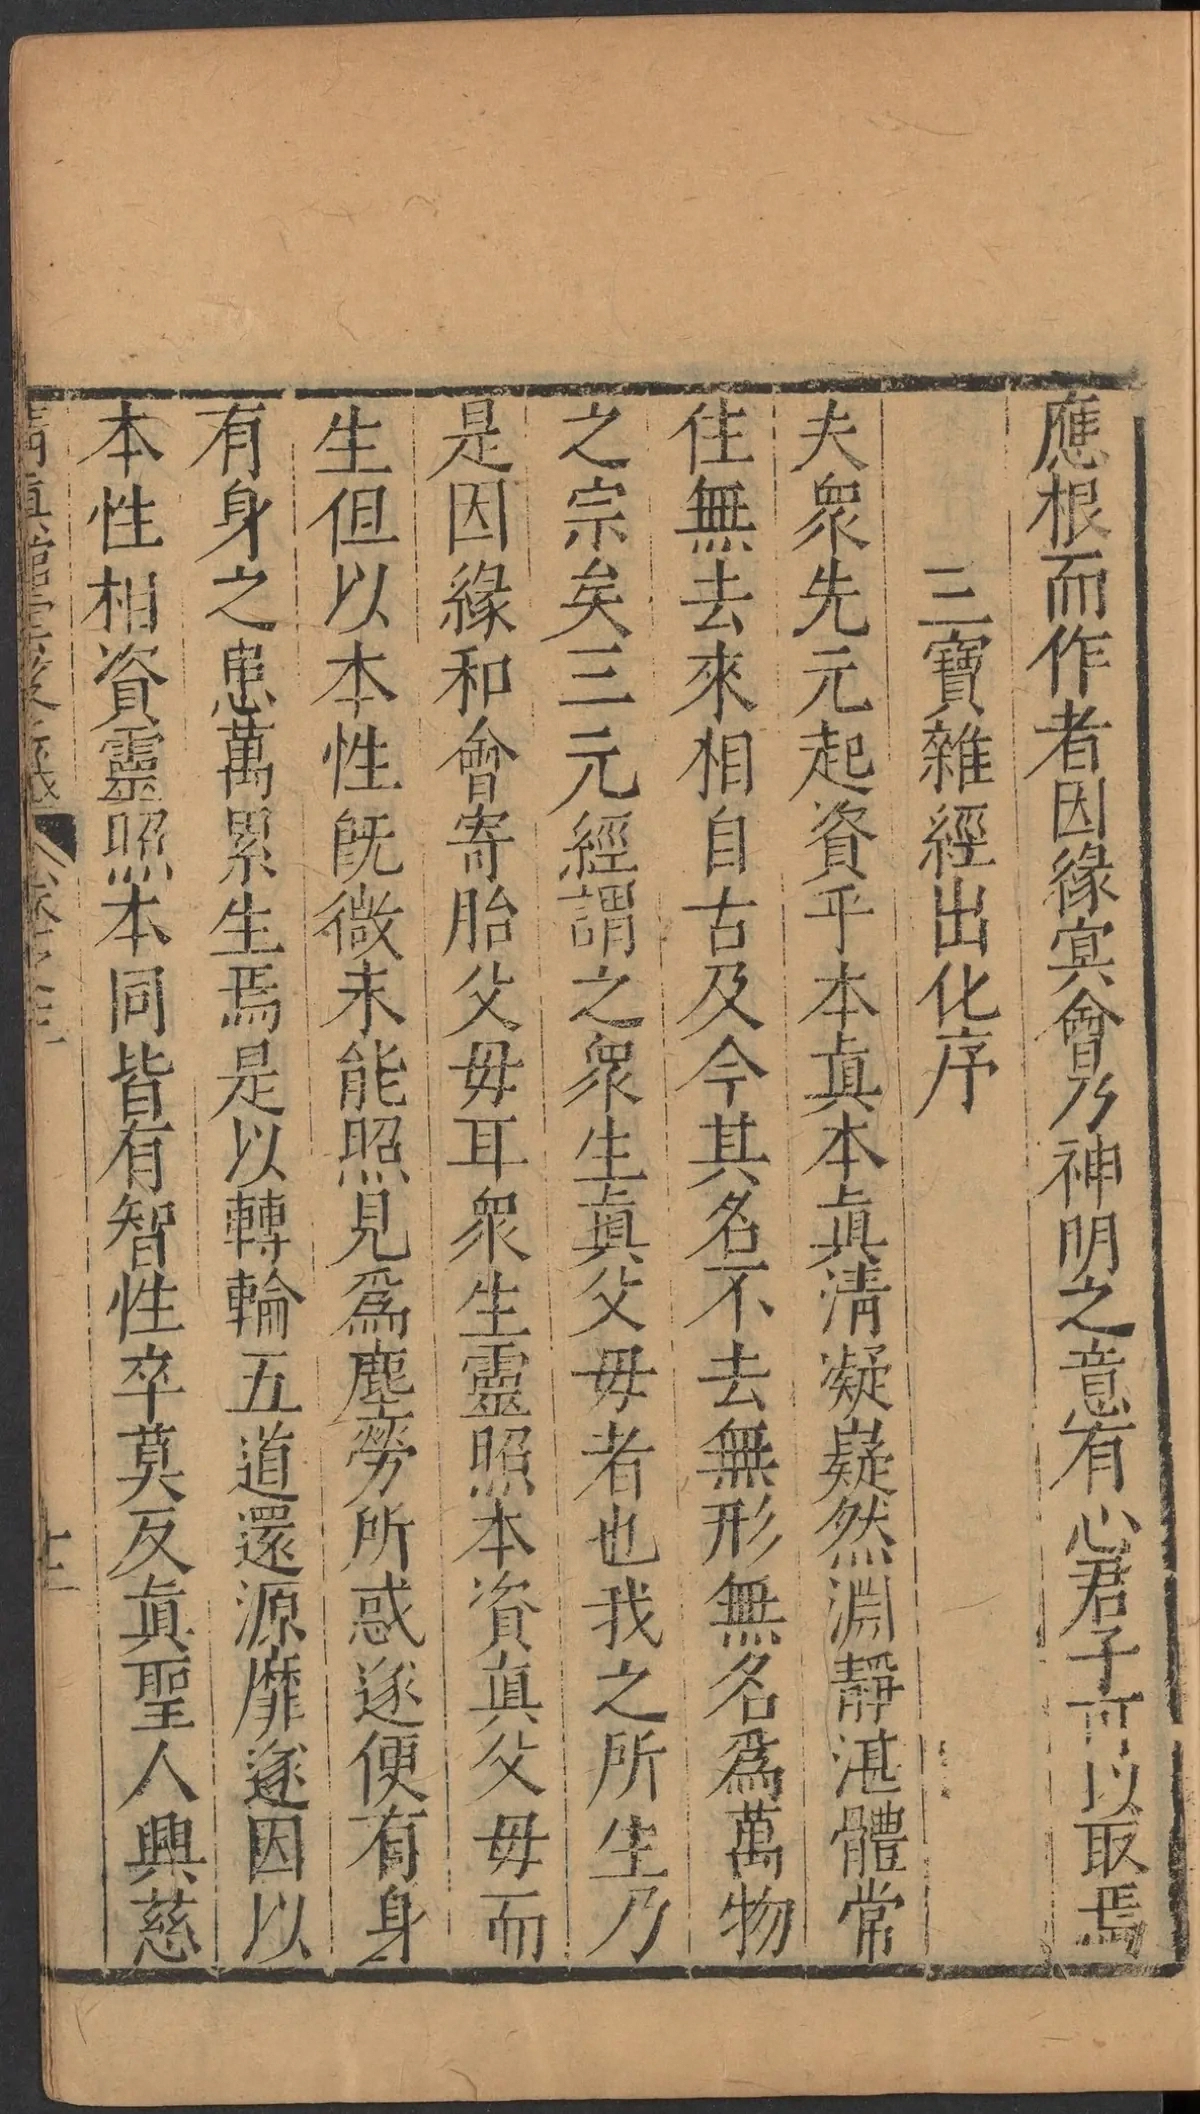 應根而作者因緣寘會乃神明之意有心君子可以取焉
三寶雜經出化序
夫衆先元起資乎本眞本眞淸凝嶷然淵靜湛體常
住無去來相自古及今其名不去無形無名爲萬物
之宗矣三元經謂之衆生眞父母者也我之所生乃
是因緣和會寄胎父母耳衆生靈照本資眞父母而
生但以本性旣微未能照見爲塵勞所惑遂便有身
有身之患萬累生焉是以轉輪五道還源靡逮因以
本性相資靈照本同皆有智性卒莫反眞聖人興慈